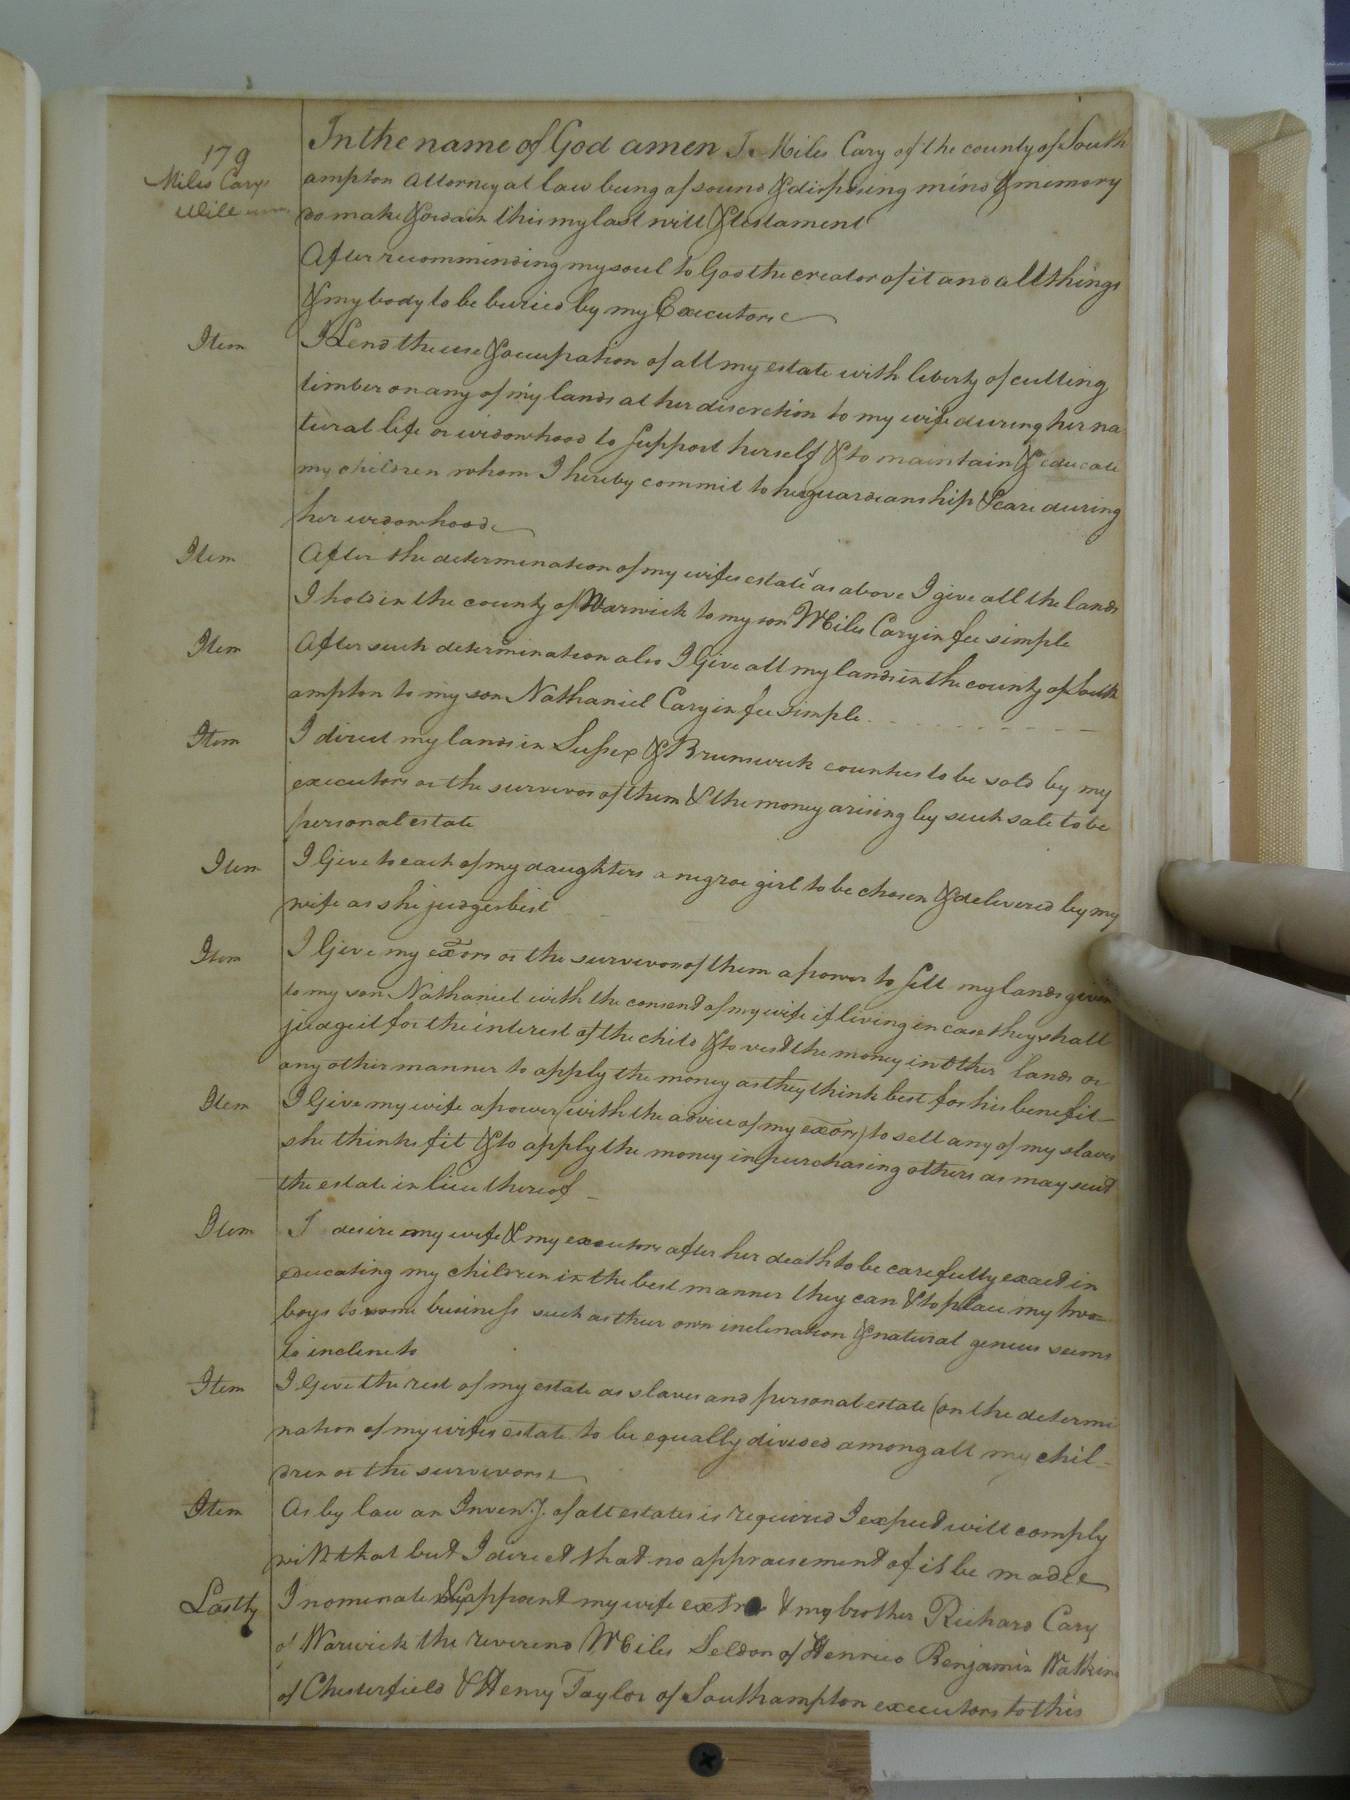 179
Miles Carys
Will
In the name of God amen I. Miles Cary of the county of South
ampton attorney at law being of sound & disposing mind & memory
do make & ordain this my last will & testament
After recomminding my soul to God the creator of it and all things
& my body to be buried by my Executors
Item I Lend the use & occupation of all my estate with liberty of cutting
timber on any of my lands at her discretion to my wife during her na
tural life or widowhood to Support herself & to maintain & educate
my children whom I hereby commit to her guardianship & care during
her widowhood
Item After the determination of my wifes estate as above I give all the lands
I hold in the county of Warwick to my son Miles Cary in fee simple
Item After such determination also I Give all my lands in the county of South
ampton to my son Nathaniel Cary in fee simple
Item I direct my lands in Sussex & Brunswick counties to be sold by my
executors or the survivor of them & the money arising by such sale to be
personal estate
Item I Give to each of my daughters a negroe girl to be chosen & delivered by my
wife as she judges best
Item I Give my exors or the survivor of them a power to Sell my lands given
to my son Nathaniel with the consent of my wife if living in case they shall
judge it for the interest of the child & to vest the money in other lands or
any other manner to apply the money as they think best for his benefit
Item I Give my wife a power (with the advice of my exors) to sell any of my slaves
she thinks fit & to apply the money in purchasing others as may suit
the estate in lieu thereof
Item I desire my wife & my executors after her death to be carefully exact in
educating my children in the best manner they can & to place my two
boys to some business such as their own inclination & natural genius seems
to incline to
Item I Give the rest of my estate as slaves and personal estate (on the determi
nation of my wifes estate to be equally divided among all my chil-
dren or the survivors
Item As by law an Inveny. of all estates is required I expect will comply
with that but I direct that no appraisement of it be made
Lastly I nominate & appoint my wife extrx & my brother Richard Cary
of Warwick the reverend Miles Seldon of Henrico Benjamin Watkins
of Chesterfield & Henry Taylor of Southampton executors to this